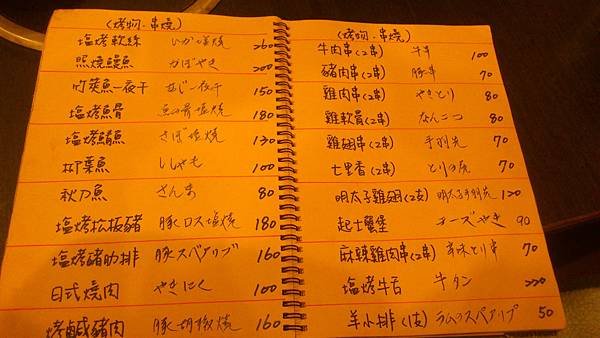 (烤物.串燒)
塩烤軟絲 いか塩焼 260
照燒鰻魚 かばやき 200
竹莢魚一夜干 あじ一夜干 150
塩烤魚骨 魚の骨塩焼 180
塩烤鯖魚 さば塩焼 130
柳葉魚 ししゃも 100
秋刀魚 さんま 80
塩烤松板豬 豚ロス塩焼 180
塩烤豬肋排 豚スペアリブ 160
日式燒肉 やきにく 100
烤鹹豬肉 豚胡椒焼 160
(烤物、串燒)
牛肉串(2串) 牛串 100
豬肉串(2串) 豚串 70
雞肉串(2串) やきとり 80
雞軟骨(2串) なんこつ 80
雞翅串(2串) 手羽先 70
七里香(2串) とりの尻 70
明太子雞翅(2支) 明太子手羽先 120
起士蟹堡 チーズやき 90
麻辣雞肉串(2串) 辛味とり串 70
塩烤牛舌 牛タン 220
羊小排(1支) ラムのスペアリブ 50